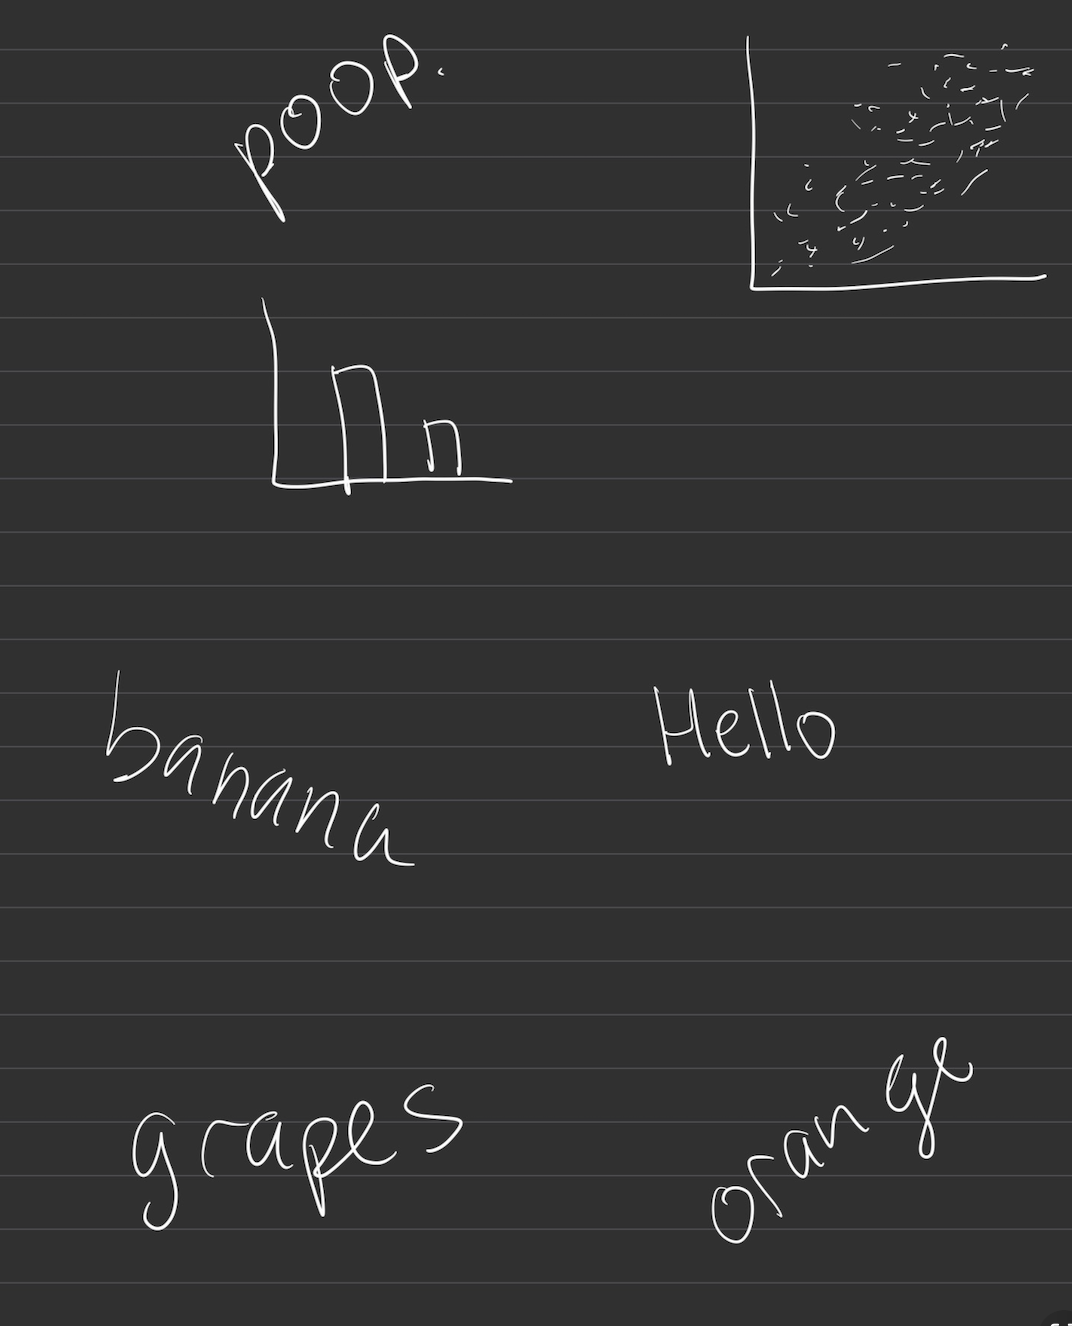 poop.
banana
Hello
grapes
orange